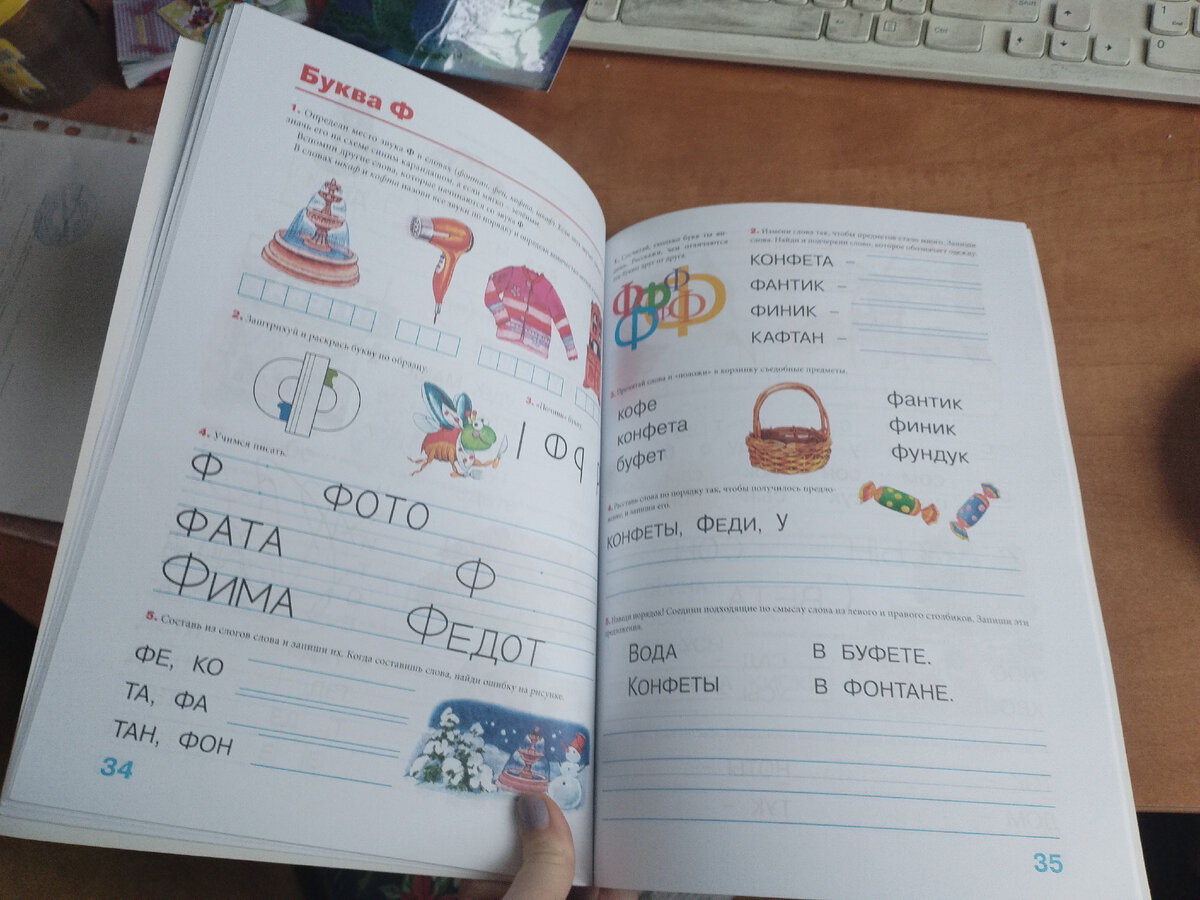 Буква Ф
1. Определи место звука Ф в словах (фонтан, фен, кофта, шкаф). Если звук
значь его на схеме синим карандашом, а если мягко – зелёным.
Вспомни другие слова, которые начинаются со звука Ф.
В словах шкаф и кофта назови все звуки по порядку и определи количество
2. Заштрихуй и раскрась букву по образцу.
3. «Почини» букву.
4. Учимся писать.
Ф
ФОТО
ФАТА
Ф
ФИМА
ФЕДОТ
5. Составь из слогов слова и запиши их. Когда составишь слова, найди ошибку на рисунке.
ФЕ, КО
ТА, ФА
ТАН, ФОН
34
1. Сосчитай, сколько букв ты ви-
дишь. Расскажи, чем отличаются
эти буквы друг от друга.
2. Измени слова так, чтобы предметов стало много. Запиши
слова. Найди и подчеркни слово, которое обозначает одежду.
КОНФЕТА –
ФАНТИК –
ФИНИК –
КАФТАН –
3. Прочитай слова и «положи» в корзинку съедобные предметы.
кофе
конфета
буфет
фантик
финик
фундук
4. Расставь слова по порядку так, чтобы получилось предло-
жение, и запиши его.
КОНФЕТЫ, ФЕДИ, У
5. Наведи порядок! Соедини подходящие по смыслу слова из левого и правого столбиков. Запиши эти
предложения.
ВОДА В БУФЕТЕ.
КОНФЕТЫ В ФОНТАНЕ.
35